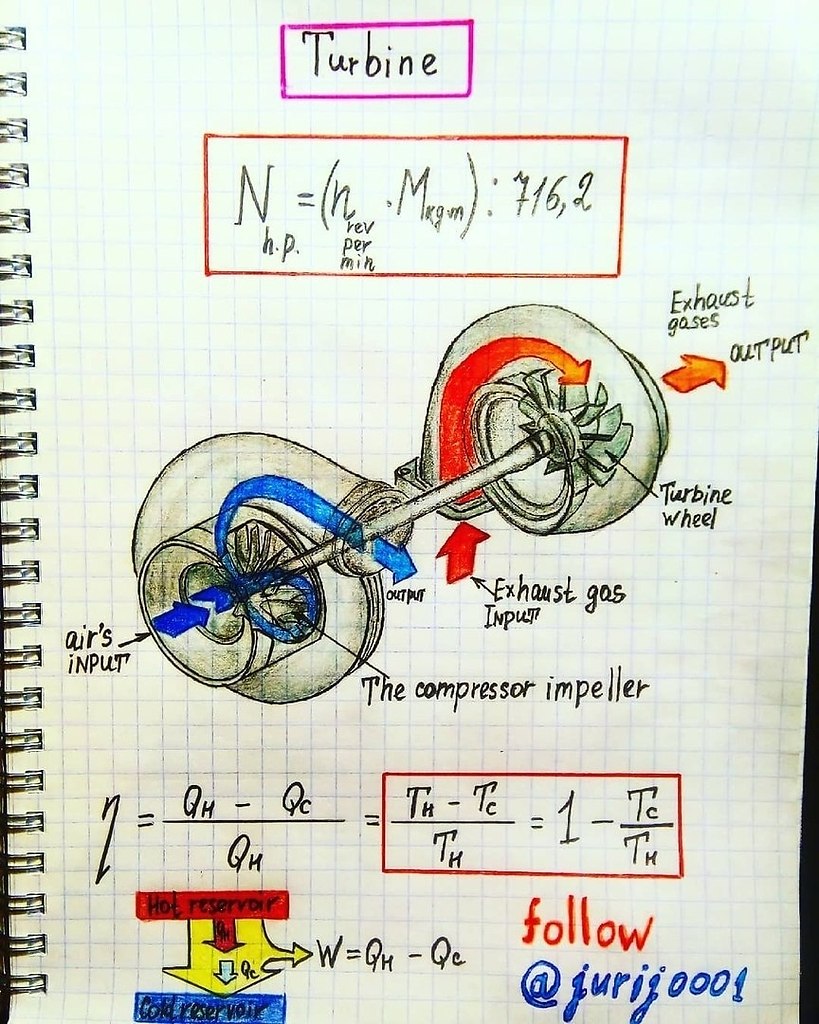 Turbine
N h.p. = (n rev per min · M kg·m) : 716,2
Exhaust
gases
OUTPUT
Turbine
wheel
OUTPUT
Exhaust gas
INPUT
air's
INPUT
The compressor impeller
η = (Q_H - Q_C) / Q_H = (T_H - T_C) / T_H = 1 - T_C / T_H
Hot reservoir
Q_H
Q_C
W = Q_H - Q_C
Cold reservoir
follow
@jurij0001